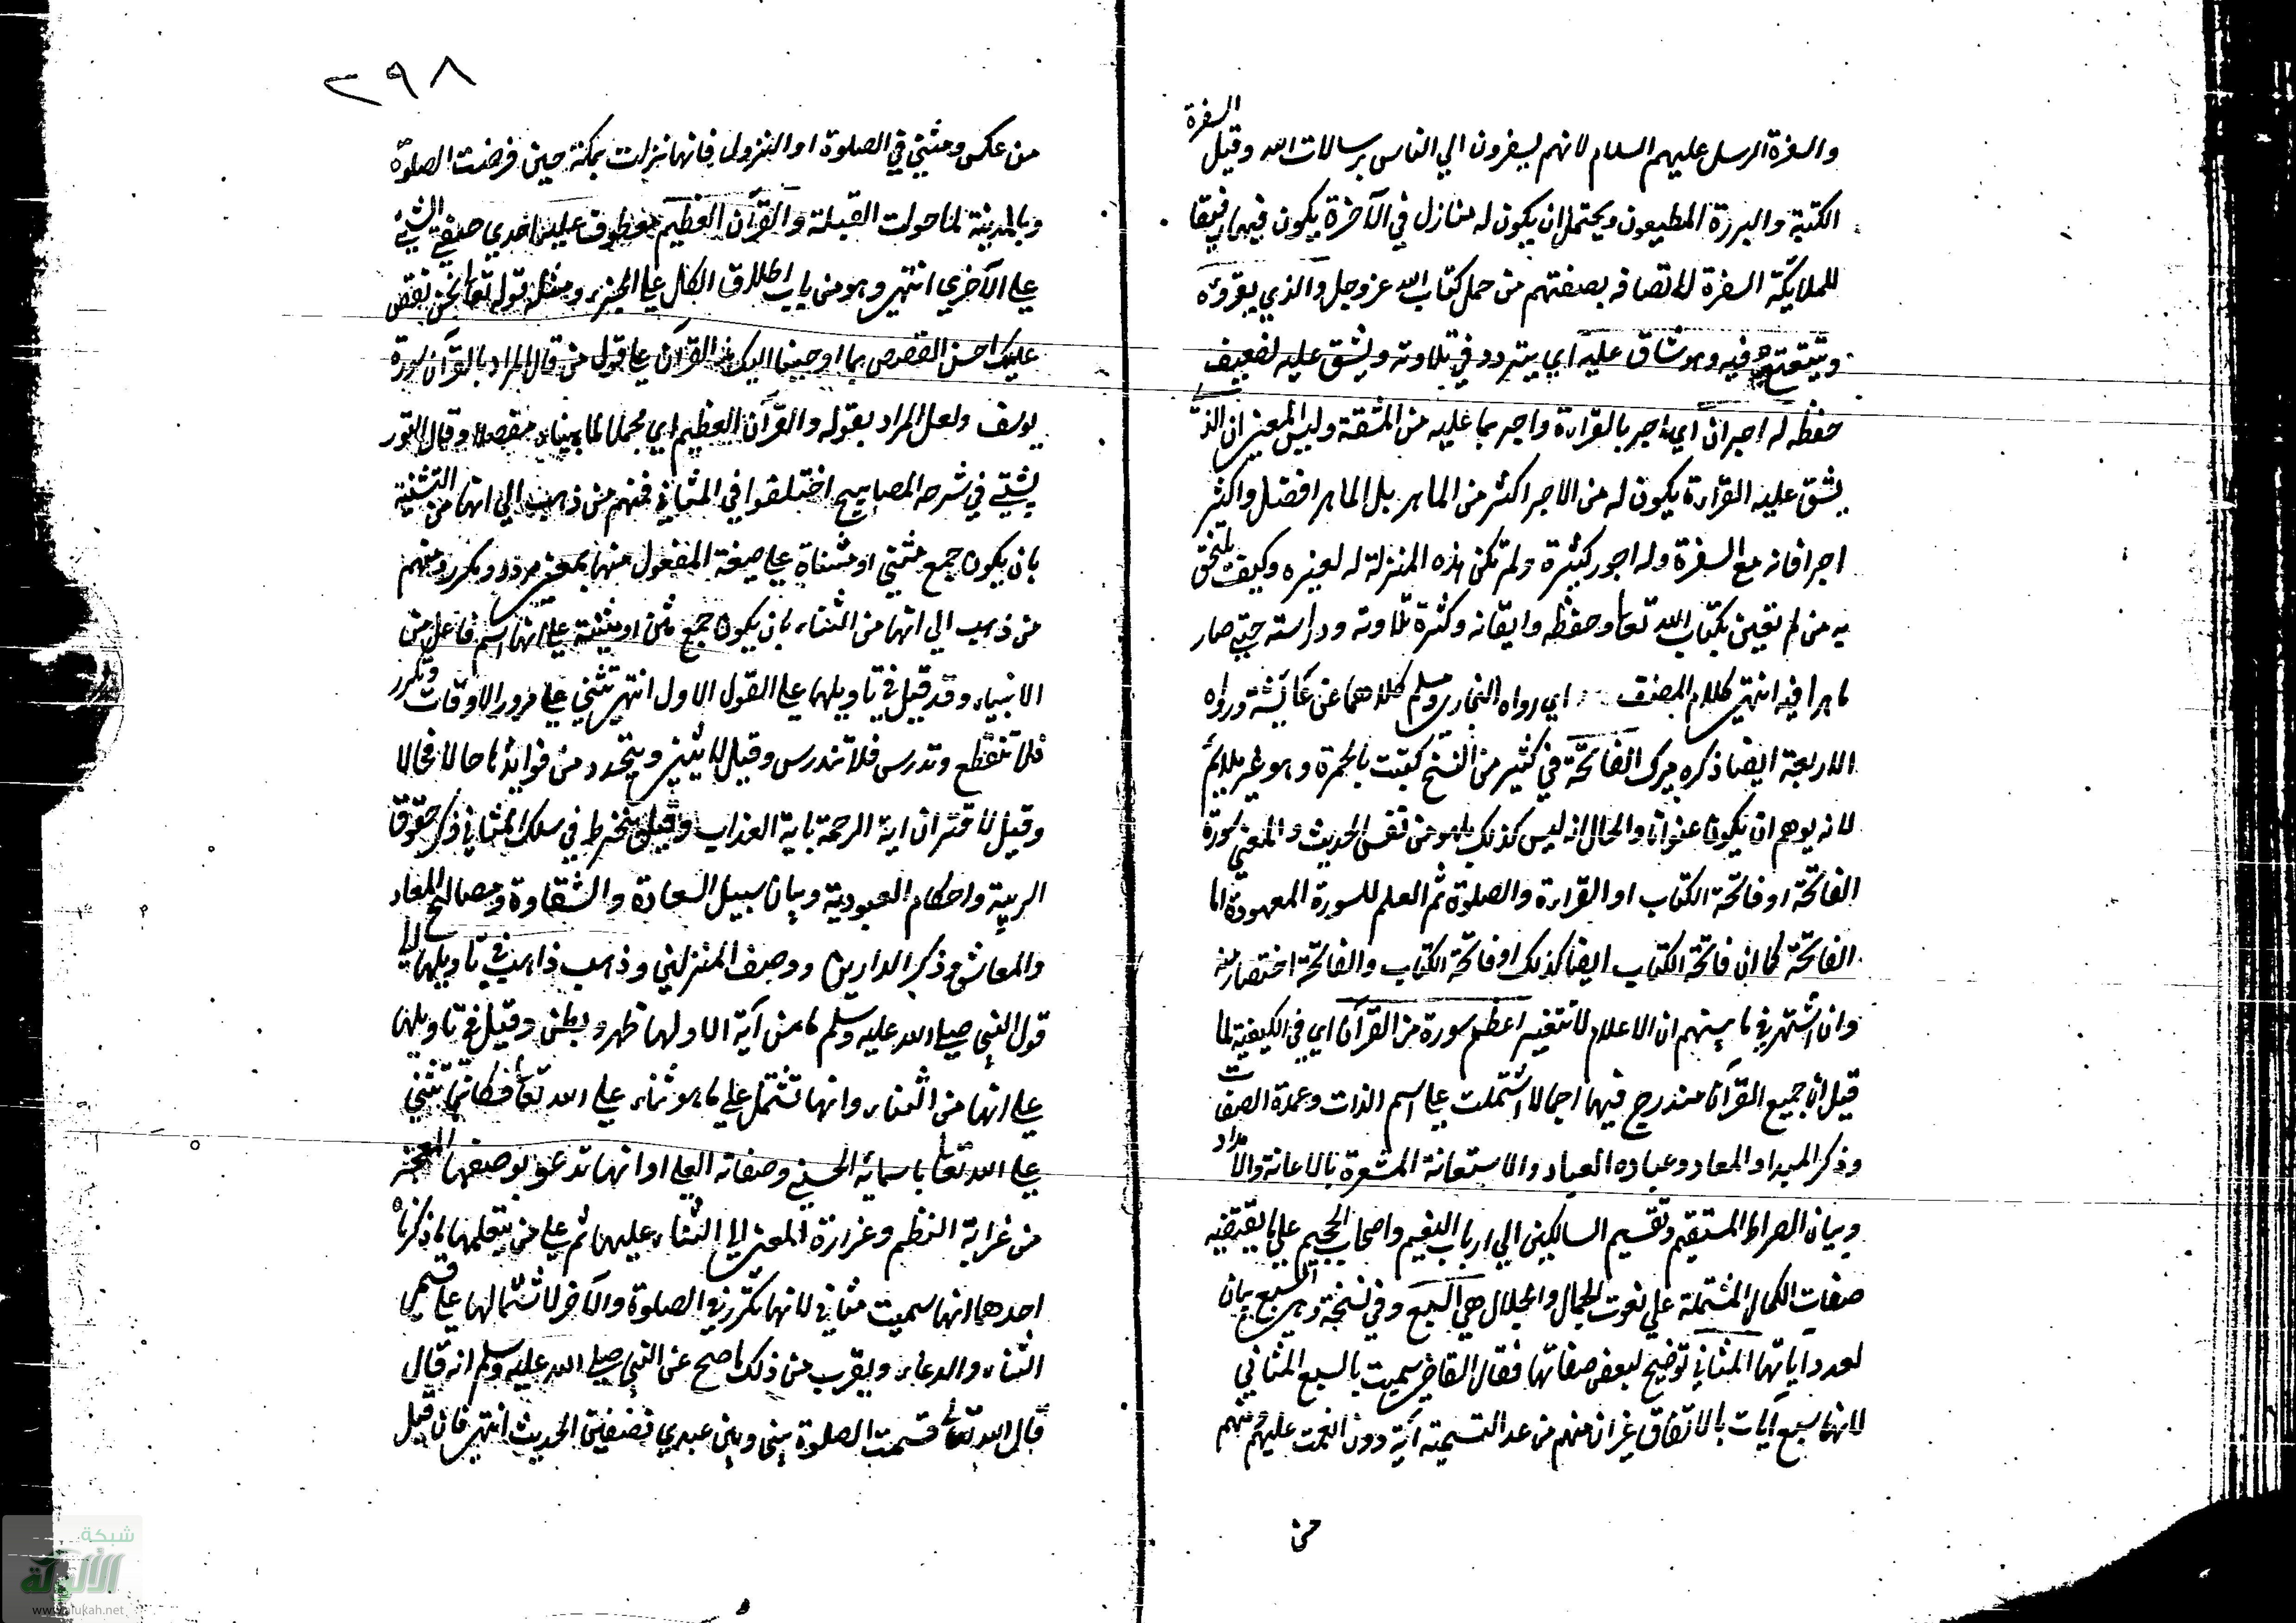 والسفرة الرسل عليهم السلام لانهم يسفرون الي الناس برسالات الله وقيل السفرة
الكتبة والبررة المطيعون ويحتمل ان يكون له منازل في الآخرة يكون فيها رفيقا
للملائكة السفرة لاتصافه بصفتهم من حمل كتاب الله عز وجل والذي يقرؤه
ويتتعتع فيه وهو شاق عليه اي يتردد في تلاوته ويشق عليه لضعيف
حفظه له اجران اي اجر بالقراءة واجر بما عليه من المشقة وليس المعنى ان الذي
يشق عليه القراءة يكون له من الاجر اكثر من الماهر بل الماهر افضل واكثر
اجرا فانه مع السفرة وله اجور كثيرة ولم تكن هذه المنزلة له لغيره وكيف يلتحق
به من لم يعين بكتاب الله تعا وحفظه واتقانه وكثرة تلاوته ودراسته حتي صار
ماهرا فيه انتهي كلام المصنف اي رواه البخاري ومسلم كلاهما عن عائشة ورواه
الاربعة ايضا ذكره ميرك الفاتحة في كثير من النسخ كتبت بالحمرة وهو غير ملائم
لانه يوهم ان يكون عنوانا والحال انه ليس كذلك بل هو من نفس الحديث والمعنى سورة
الفاتحة او فاتحة الكتاب او القراءة والصلوة ثم العلم للسورة المعهودة اما
الفاتحة كما ان فاتحة الكتاب ايضا كذلك او فاتحة الكتاب والفاتحة اختصار منه
وان اشتهر في ما بينهم ان الاعلام لا تتغير اعظم سورة من القرآن اي في الكيفية لما
قيل ان جميع القرآن مندرج فيها اجمالا اشتملت علي اسم الذات وعمدة الصفات
وذكر المبدا والمعاد وعباده العباد والاستعانة المشعرة بالاعانة والامداد
وبيان الصراط المستقيم وتقسيم السالكين الي ارباب النعيم واصحاب الجحيم علي ما يقتضيه
صفات الكمال المشتملة علي نعوت الجمال والجلال هي السبع وفي نسخة وهي السبع بيان
لعدد آياتها المثاني توضيح لبعض صفاتها فقال القاضي سميت بالسبع المثاني
لانها سبع آيات بالاتفاق غير ان منهم من عد التسمية آية دون انعمت عليهم ومنهم
من
٢٩٨
من عكس ومثنى في الصلوة او النزول فانها نزلت بمكة حين فرضت الصلوة
وبالمدينة لما حولت القبلة والقرآن العظيم معطوف عليه احدي صفتي الشئ
علي الآخري انتهي وهو من باب اطلاق الكل علي الجزء ومثله قوله تعا نحن نقص
عليك احسن القصص بما اوحينا اليك هذا القرآن علي قول من قال المراد بالقرآن سورة
يوسف ولعل المراد بقوله والقرآن العظيم اي مجملا لما بيناه مفصلا وقال التور
بشتي في شرحه المصابيح اختلفوا في المثاني فمنهم من ذهب الي انها من التثنية
بان يكون جمع مثنى او مثناة علي صيغة المفعول منها بمعنى مردد ومكرر ومنهم
من ذهب الي انها من الثناء بان يكون جمع مثن او مثنية علي انها اسم فاعل من
الاثنياء وقد قيل في تاويلها علي القول الاول انتهي تثنى علي مرور الاوقات وتكرر
فلا تنقطع وتدرس فلا تندرس وقيل لما يثنى ويتجدد من فوائدها حالا فحالا
وقيل لاقتران اية الرحمة باية العذاب وقيل ينخرط في سلك المثاني ذكر حقوق
الربية واحكام العبودية وبيان سبيل السعادة والشقاوة ومصالح المعاد
والمعاش وذكر الدارين ووصف المنزلين وذهب ذاهب في تاويلها الي
قول النبي صلي الله عليه وسلم ما من آية الا ولها ظهر وبطن وقيل في تاويلها
علي انها من الثناء وانها تشتمل علي ما هو ثناء علي الله تعا فكانما تثني
علي الله تعا باسمائه الحسني وصفاته العلي او انها تدعو بوصفها المعجز
من غرابة النظم وغزارة المعنى الي الثناء عليها ثم علي من يتعلمها ما ذكرناه
احدهما انها سميت مثاني لانها تكرر في الصلوة والآخر لاشتمالها علي قسمي
الثناء والدعاء ويقرب من ذلك ما صح عن النبي صلي الله عليه وسلم انه قال
قال الله تعالي قسمت الصلوة بيني وبين عبدي نصفين الحديث انتهي فان قيل
شبكة
الألوكة
www.alukah.net